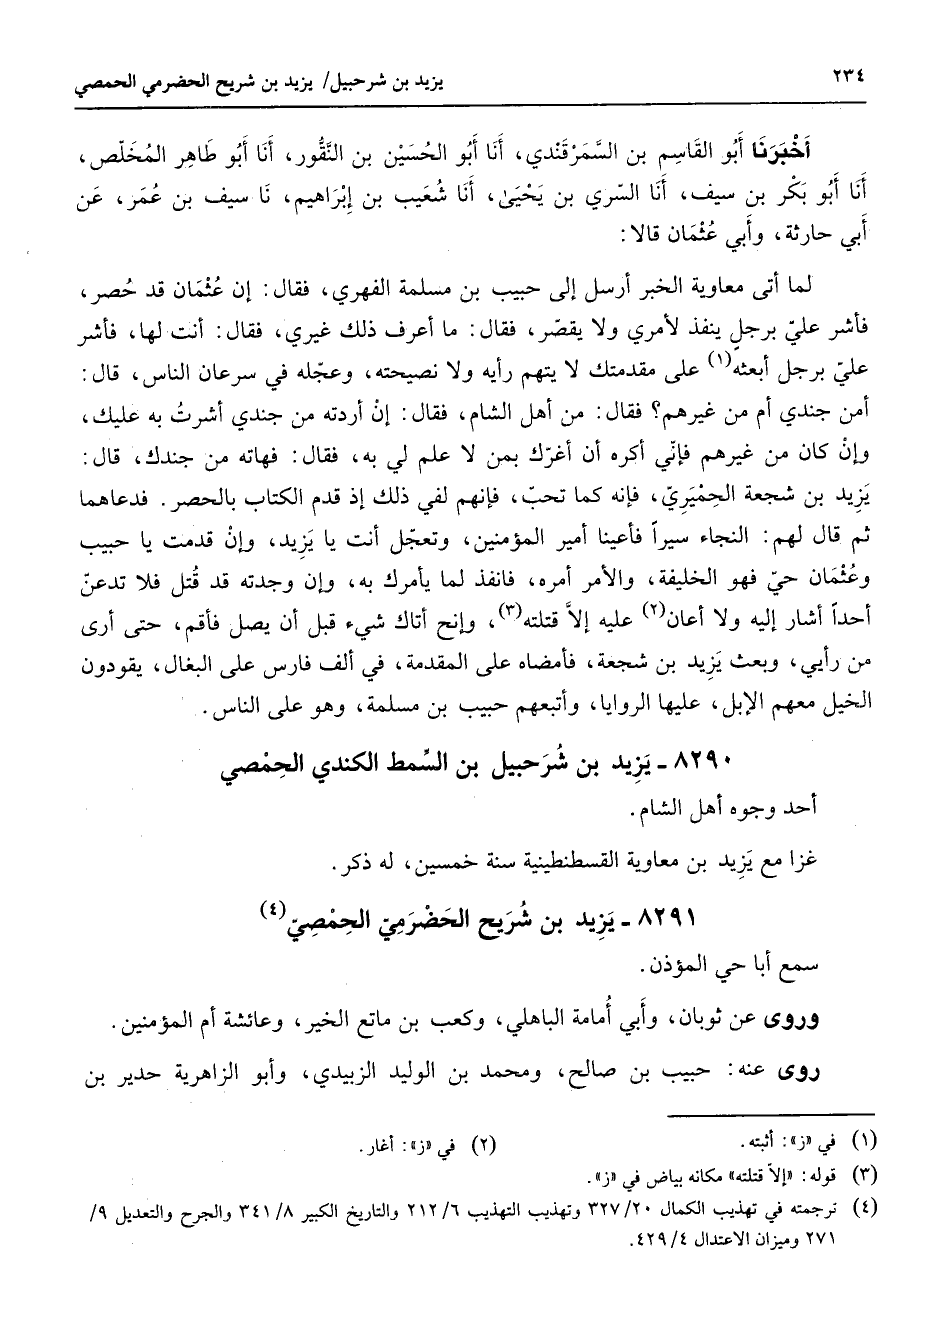 ٢٣٤
يزيد بن شرحبيل/ يزيد بن شريح الحضرمي الحمصي
أَخْبَرَنَا أَبُو القَاسِم بن السَّمَرْقَندي، أَنَا أَبُو الحُسَيْن بن النَّقُّور، أَنَا أَبُو طَاهِر المُخَلّص،
أَنَا أَبُو بَكْر بن سيف، أَنَا السّري بن يَحْيَىٰ، أَنَا شُعَيب بن إِبْرَاهيم، نَا سيف بن عُمَر، عَن
أبي حارثة، وأَبي عُثْمَان قالا:
لما أتى معاوية الخبر أرسل إلى حبيب بن مسلمة الفهري، فقال: إن عُثْمَان قد حُصر،
فأشر عليّ برجلٍ ينفذ لأمري ولا يقصّر، فقال: ما أعرف ذلك غيري، فقال: أنت لها، فأشر
عليّ برجل أبعثه(١) على مقدمتك لا يتهم رأيه ولا نصيحته، وعجّله في سرعان الناس، قال:
أمن جندي أم من غيرهم؟ فقال: من أهل الشام، فقال: إنْ أردته من جندي أشرتُ به عليك،
وإنْ كان من غيرهم فإنّي أكره أن أغرّك بمن لا علم لي به، فقال: فهاته من جندك، قال:
يَزِيد بن شجعة الحِمْيَرِيّ، فإنه كما تحبّ، فإنهم لفي ذلك إذ قدم الكتاب بالحصر. فدعاهما
ثم قال لهم: النجاء سيراً فأعينا أمير المؤمنين، وتعجّل أنت يا يَزِيد، وإنْ قدمت يا حبيب
وعُثْمَان حيّ فهو الخليفة، والأمر أمره، فانفذ لما يأمرك به، وإن وجدته قد قُتل فلا تدعنّ
أحداً أشار إليه ولا أعان(٢) عليه إلاَّ قتلته(٣)، وإنح أتاك شيء قبل أن يصل فأقم، حتى أرى
من رأيي، وبعث يَزِيد بن شجعة، فأمضاه على المقدمة، في ألف فارس على البغال، يقودون
الخيل معهم الإبل، عليها الروايا، وأتبعهم حبيب بن مسلمة، وهو على الناس.
٨٢٩٠ ـ يَزِيد بن شُرَحبيل بن السِّمط الكندي الحِمْصي
أحد وجوه أهل الشام.
غزا مع يَزِيد بن معاوية القسطنطينية سنة خمسين، له ذكر.
٨٢٩١ ـ يَزِيد بن شُرَيح الحَضْرَمِيّ الحِمْصِيّ(٤)
سمع أبا حي المؤذن.
وروى عن ثوبان، وأَبي أُمامة الباهلي، وكعب بن ماتع الخير، وعائشة أم المؤمنين.
روى عنه: حبيب بن صالح، ومحمد بن الوليد الزبيدي، وأبو الزاهرية حدير بن
(١) في «ز»: أثبته.
(٢) في «ز»: أغار.
(٣) قوله: «إلاَّ قتلته» مكانه بياض في «ز».
(٤) ترجمته في تهذيب الكمال ٣٢٧/٢٠ وتهذيب التهذيب ٢١٢/٦ والتاريخ الكبير ٣٤١/٨ والجرح والتعديل ٩/
٢٧١ وميزان الاعتدال ٤٢٩/٤.